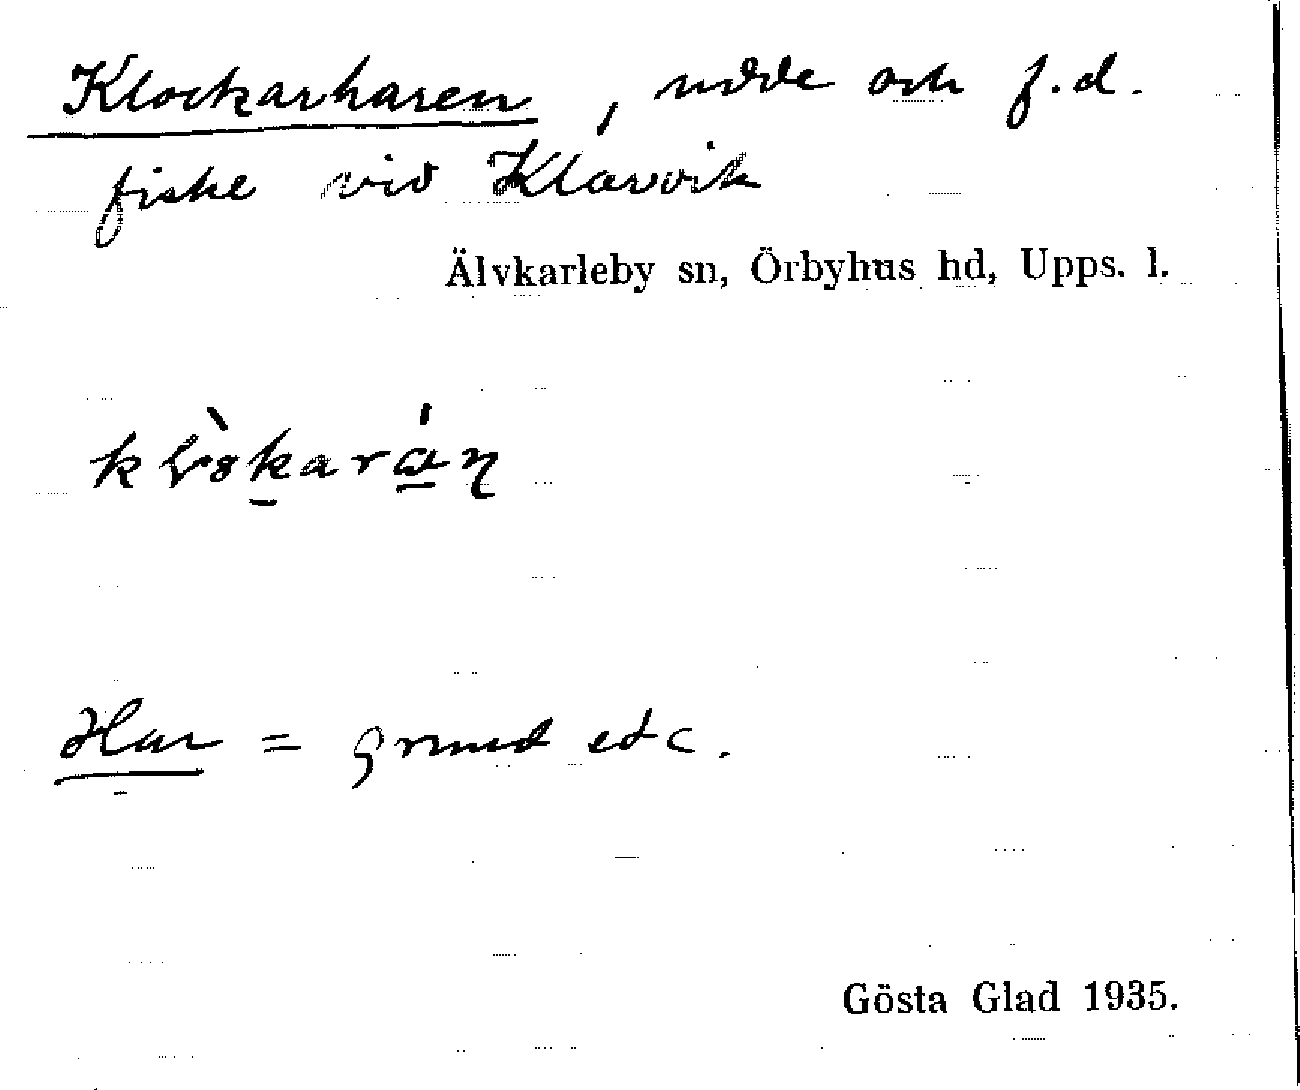 Klockarharen, udde och f.d.
fiske vid Klarvik
Älvkarleby sn, Örbyhus hd, Upps. l.
Har = grund etc.
Gösta Glad 1935.